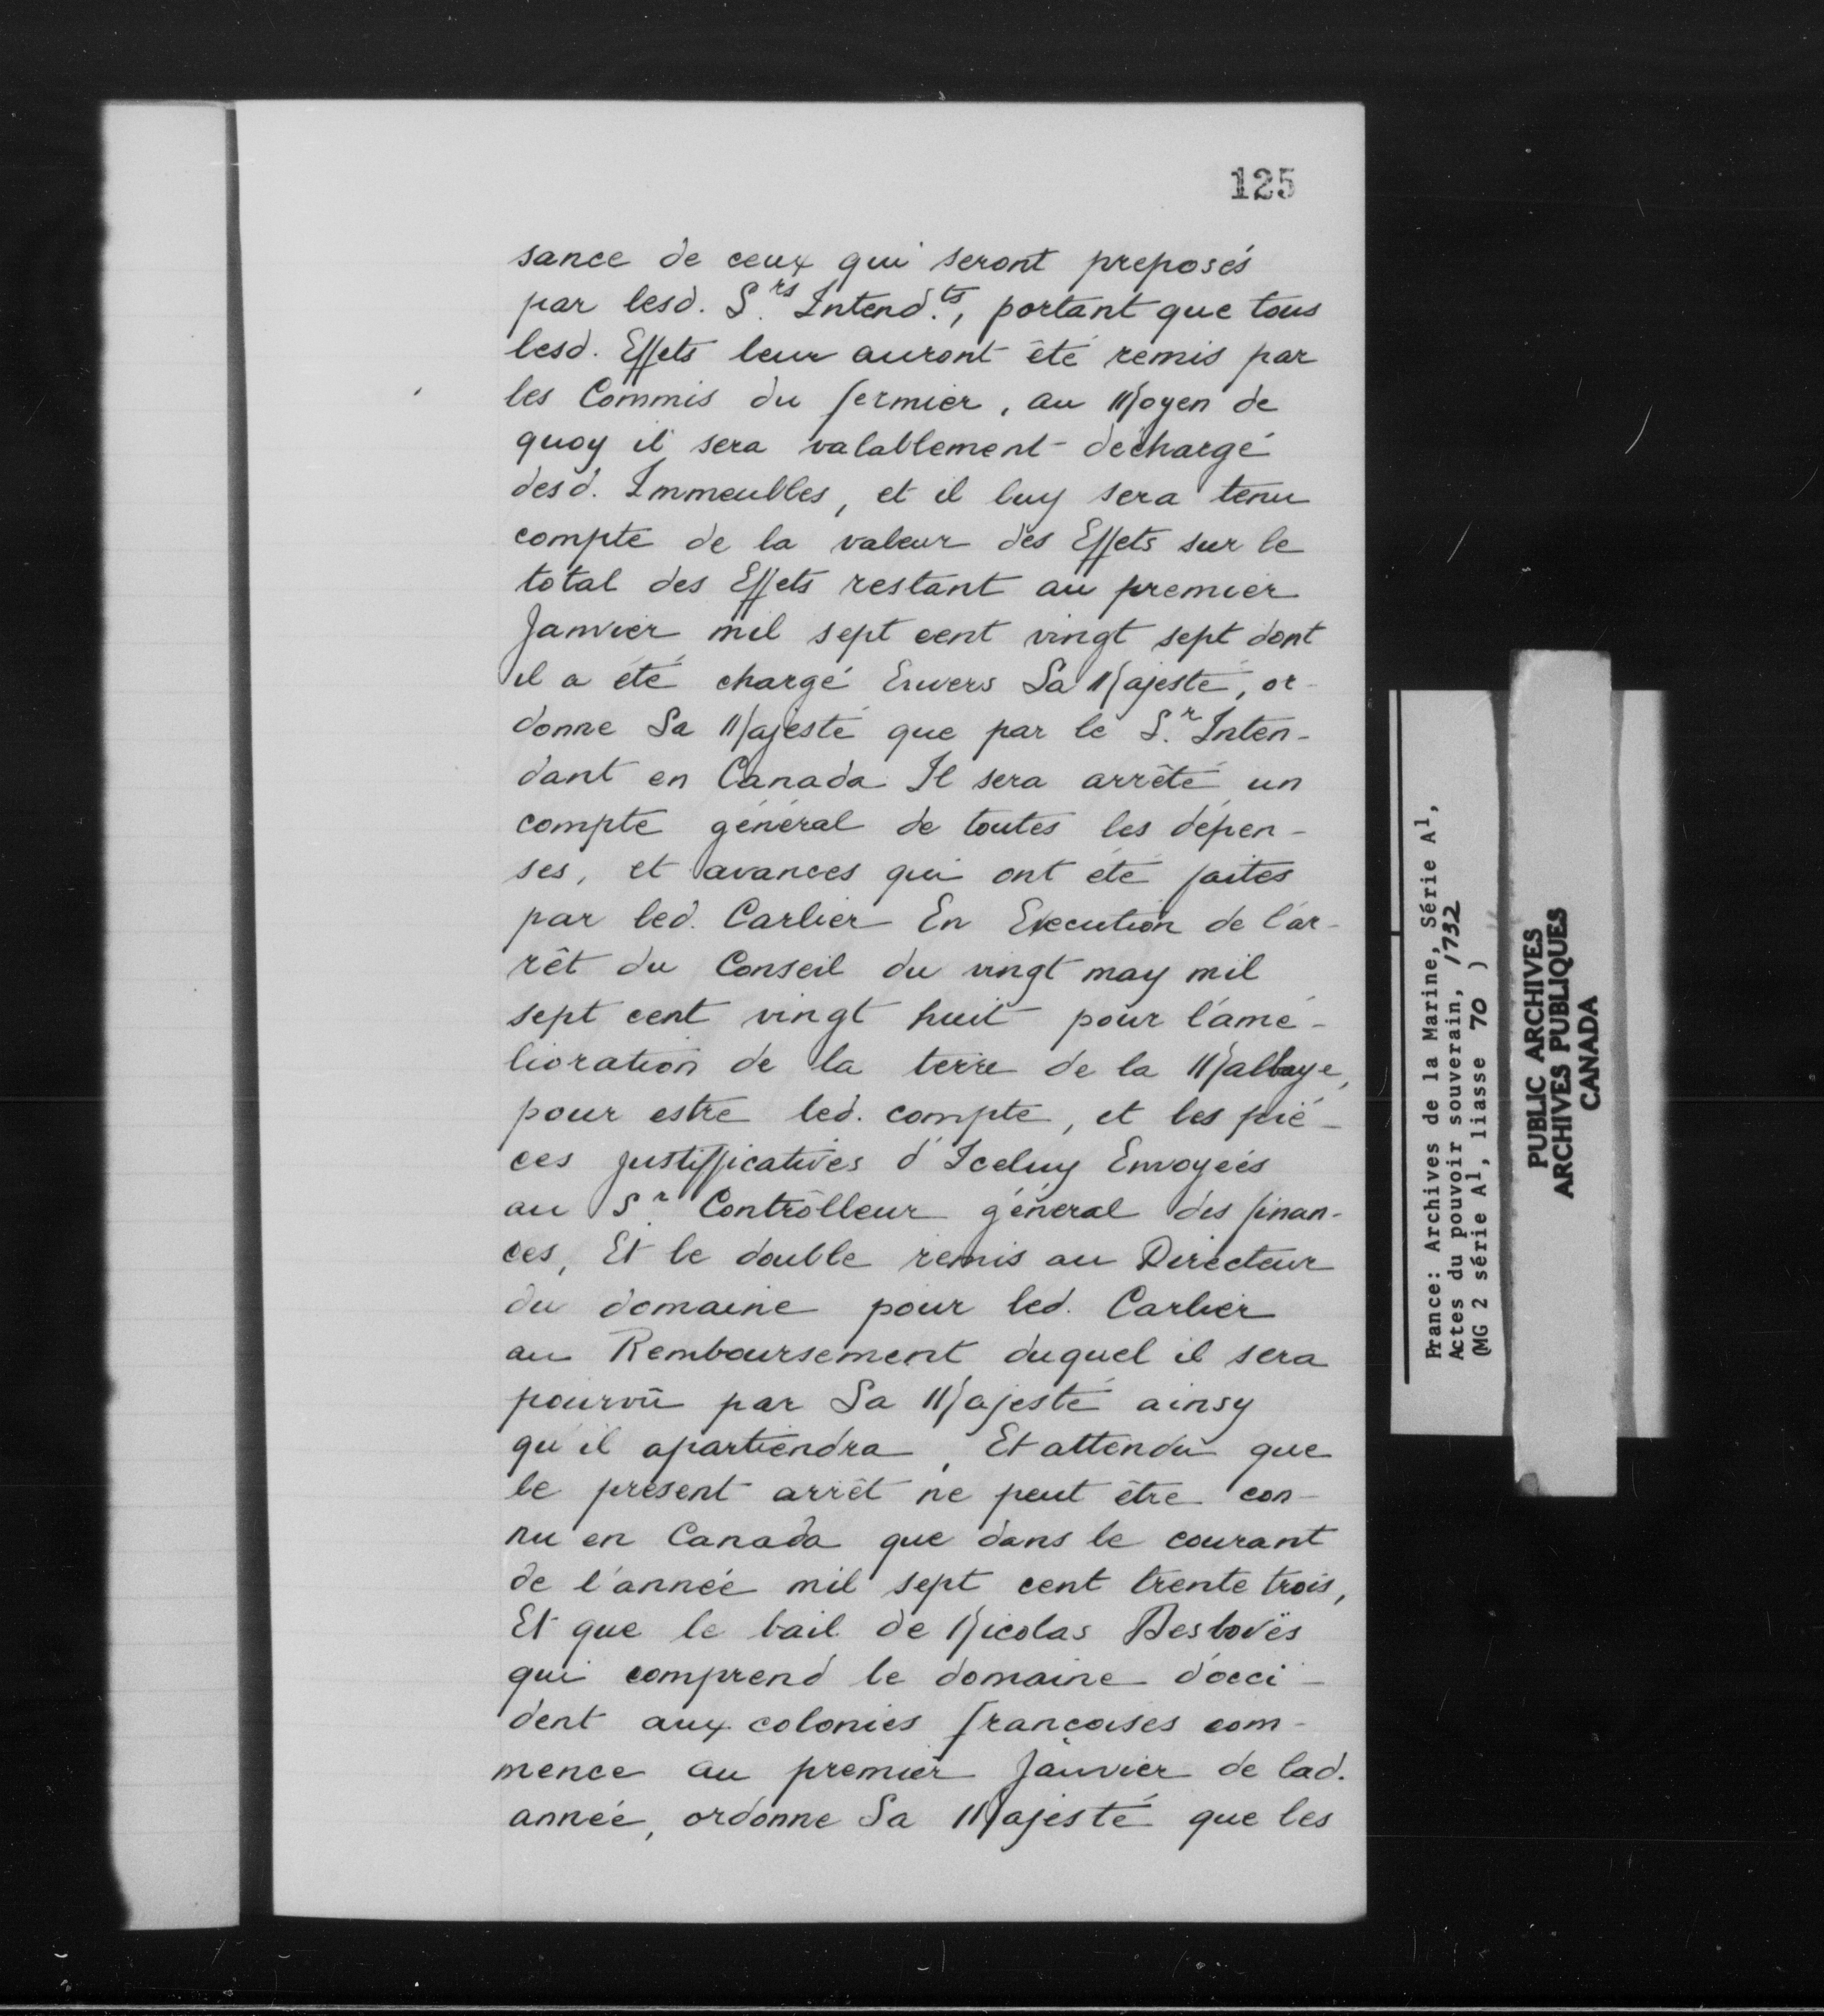 125
sance de ceux qui seront preposés
par lesd. S.rs Intend.ts, portant que tous
lesd. Effets leur auront été remis par
les Commis du fermier, au Moyen de
quoy il sera valablement déchargé
desd. Immeubles, et il luy sera tenu
compte de la valeur des Effets sur le
total des Effets restant au premier
Janvier mil sept cent vingt sept dont
il a été chargé Envers Sa Majesté, or-
donne Sa Majesté que par le S.r Inten-
dant en Canada Il sera arrêté un
compte général de toutes les dépen-
ses, et avances qui ont été faites
par led. Carlier En Execution de l'ar-
rêt du Conseil du vingt may mil
sept cent vingt huit pour l'amé-
lioration de la terre de la Malbaye,
pour estre led. compte, et les pié-
ces justifficatives d'Iceluy Envoyées
au S.r Contrôlleur général des finan-
ces, Et le double remis au Directeur
du domaine pour led. Carlier
au Remboursement duquel il sera
pourvû par Sa Majesté ainsy
qu'il apartiendra, Et attendu que
le présent arrêt ne peut être con-
nu en Canada que dans le courant
de l'année mil sept cent trente trois,
Et que le bail de Nicolas Desbovës
qui comprend le domaine d'occi-
dent aux colonies françoises com-
mence au premier Janvier de lad.
année, ordonne Sa Majesté que les
France: Archives de la Marine, Série A1,
Actes du pouvoir souverain, 1732
(MG 2 série A1, liasse 70 )
PUBLIC ARCHIVES
ARCHIVES PUBLIQUES
CANADA